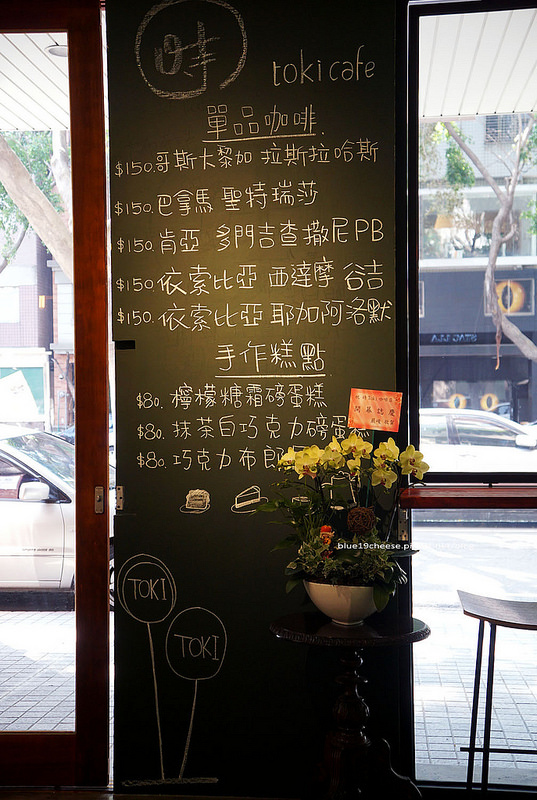 toki cafe
單品咖啡
$150. 哥斯大黎加 拉斯拉哈斯
$150. 巴拿馬 聖特瑞莎
$150. 肯亞 多門吉查撒尼PB
$150. 依索比亞 西達摩 谷吉
$150. 依索比亞 耶加阿洛默
手作糕點
$80. 檸檬糖霜磅蛋糕
$80. 抹茶白巧克力磅蛋
$80. 巧克力布朗
開幕誌慶
blue19cheese.pi
TOKI
TOKI